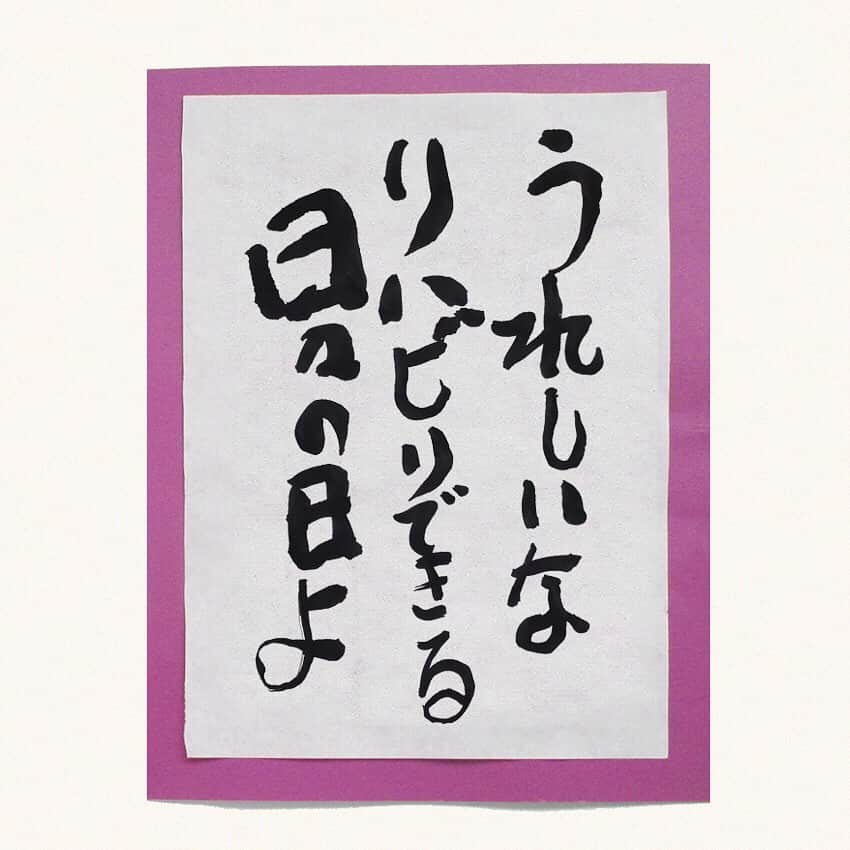 うれしいな
りハビリできる
日々の日よ